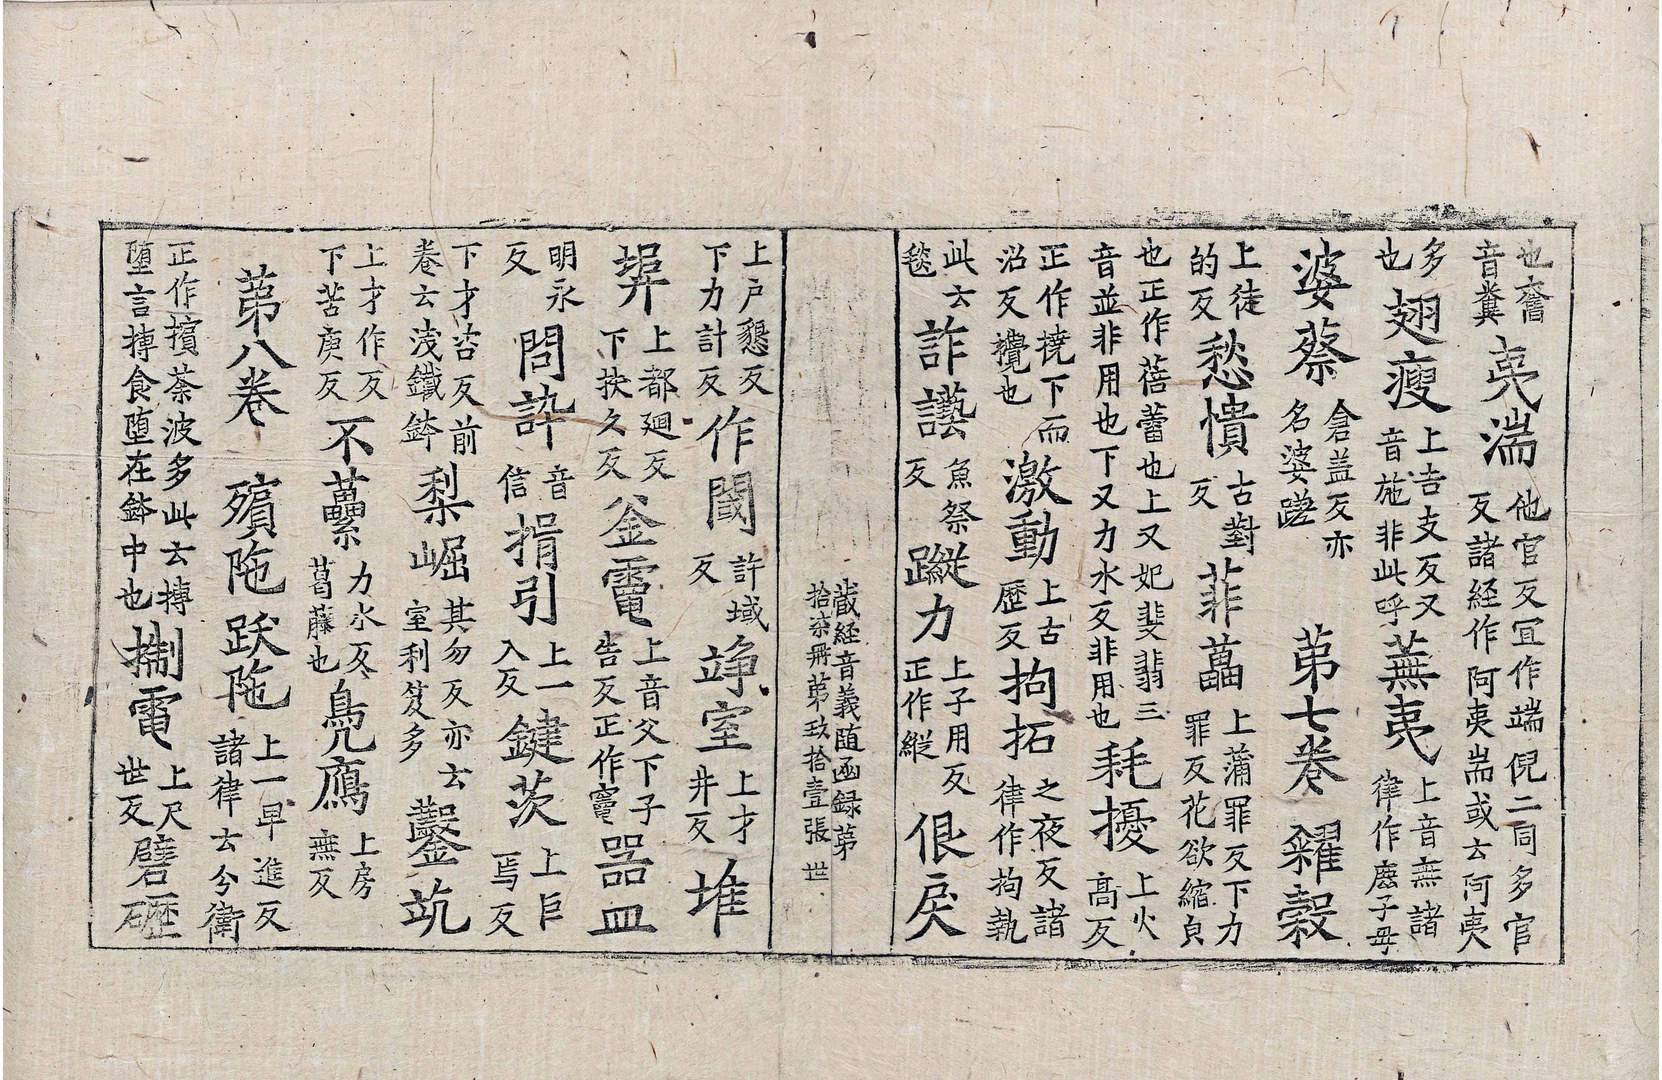 也奮音糞 夷湍 他官反冝作端倪二同多官反諸経作阿夷耑或云阿夷
多也 翅瘦 上吉支反又音施非此呼 蕪夷 上音無諸律作𪋿子母
婆蔡 倉盖反亦名婆蹉 苐七卷 糴糓
上徒的反 愁憒 古對反 菲藟 上蒲罪反下力罪反花欲縮皃
也正作蓓蕾也上又妃斐翡三音並非用也下又力水反非用也 耗擾 上火高反
正作撓下而沼反攪也 激動 上古歷反 拘拓 之夜反諸律作拘執
此云毯 詐讛 魚祭反 蹤力 上子用反正作縱 佷戾
蔵経音義随函録苐拾柒冊苐玖拾壹張 世
上戸懇反下力計反 作閾 許域反 竫室 上才井反 堆
埠 上都廻反下扶久反 釜竃 上音父下子告反正作竈 器皿
明永反 問訙 音信 捐引 上一入反 鍵茨 上巨焉反
下才咨反前卷云淺鐵鉢 梨崛 其勿反亦云室利笈多 鑿坑
上才作反下苦庚反 不虆 力水反葛藤也 鳬鴈 上房無反
苐八卷 殯陁跃陁 上一早進反諸律云今衛
正作擯荼波多此云摶堕言摶食堕在鉢中也 掣電 上尺世反 礕礰